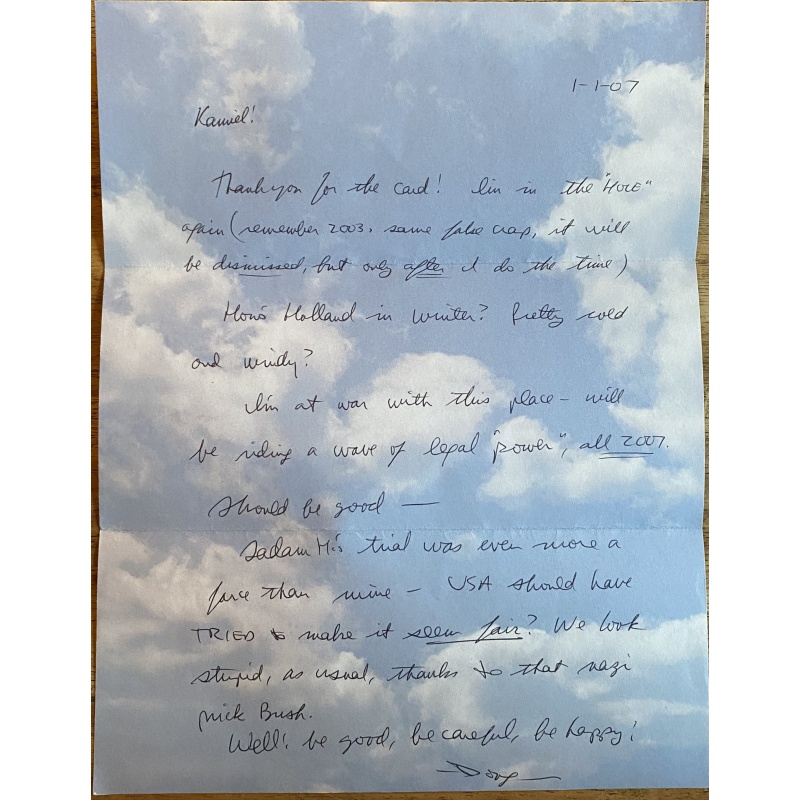 1-1-07
Kamiel!
Thankyou for the card! I'm in the "HOLE"
again (remember 2003, same false crap, it will
be dismissed, but only after I do the time)
How's Holland in winter? Pretty cold
and windy?
I'm at war with this place - will
be riding a wave of legal "power", all 2007.
Should be good —
Sadam H.'s trial was even more a
farce than mine - USA should have
TRIED to make it seem fair? We look
stupid, as usual, thanks to that nazi
prick Bush.
Well! be good, be careful, be happy!
—Doug—